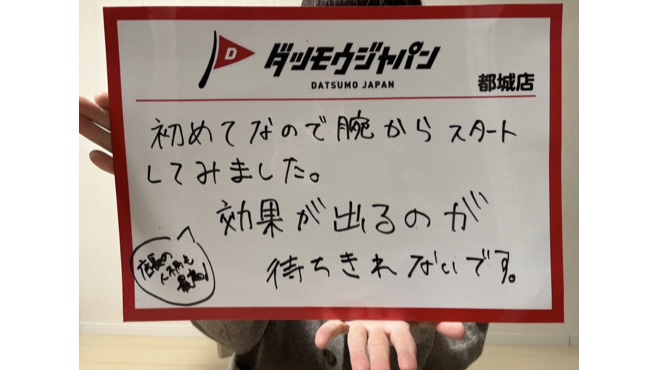 D
ダツモウジャパン
DATSUMO JAPAN
都城店
初めてなので腕からスタート
してみました。
効果が出るのが
待ちきれないです。
店長の
人柄も
最高!